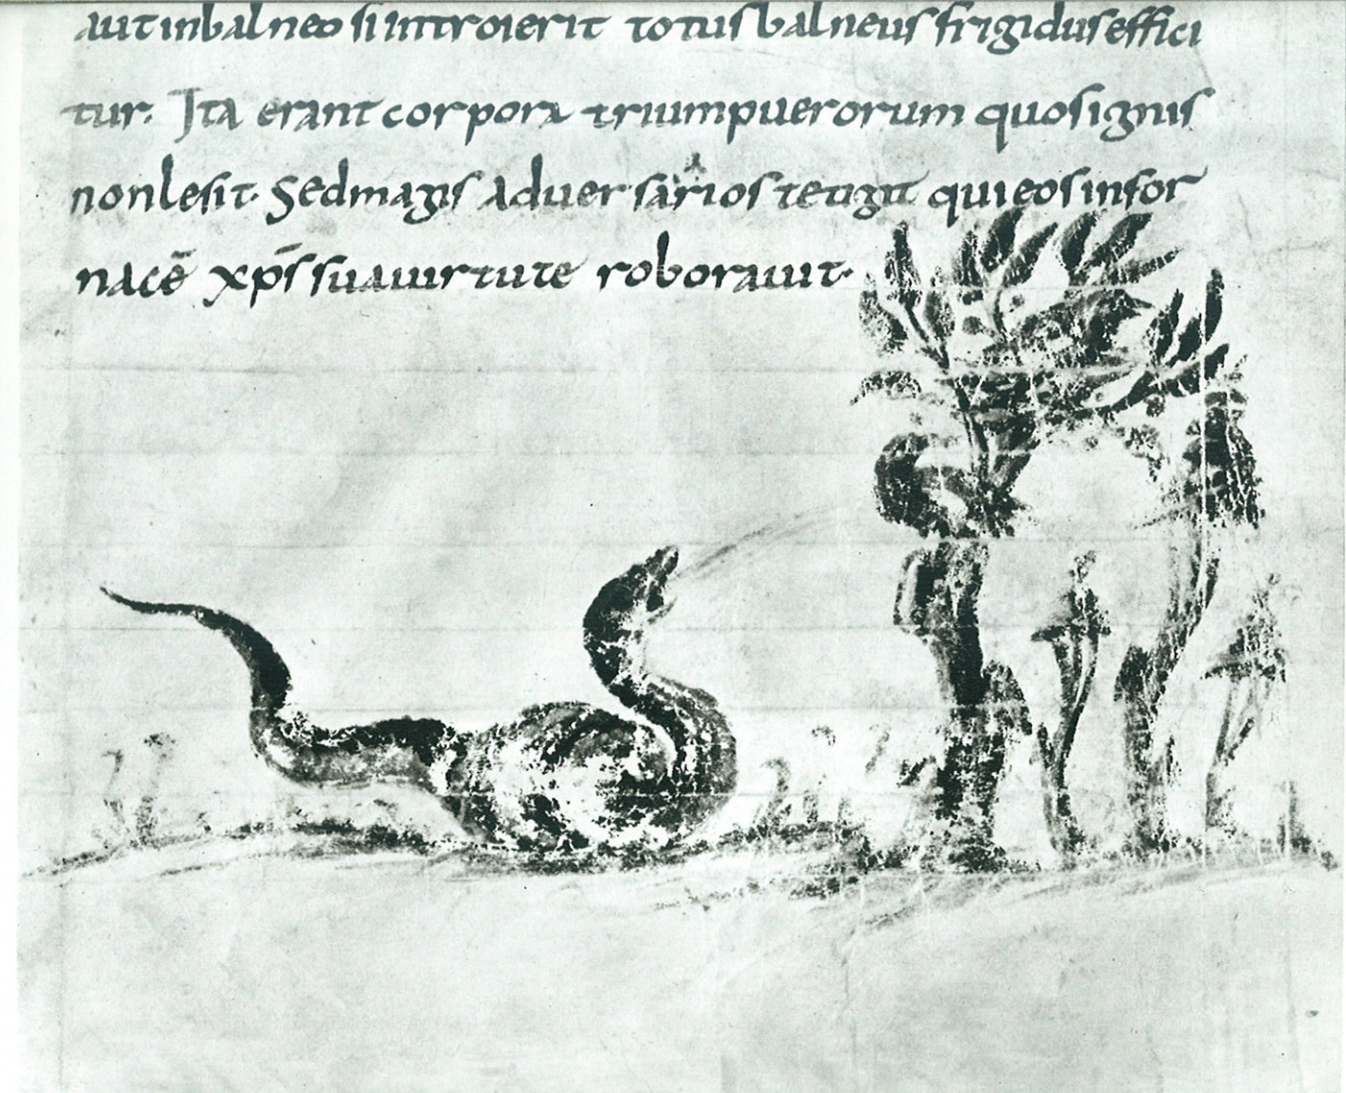 aut in balneo si introierit totus balneus frigidus effici
tur. Ita erant corpora trium puerorum quos ignis
non lesit. Sed magis aduersarios tetigit qui eos in for
nacē xp̄s sua uirtute roborauit.